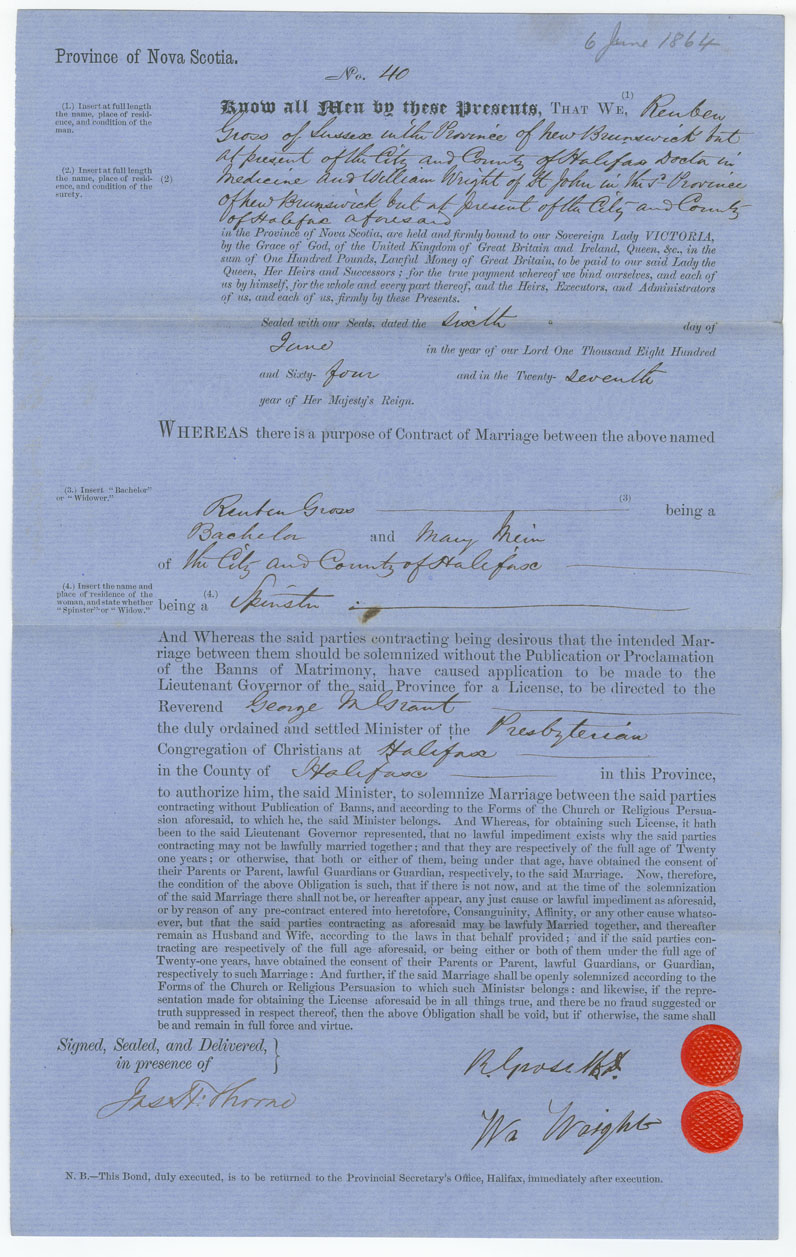 6 June 1864
Province of Nova Scotia.
No. 40
(1.) Insert at full length
the name, place of resid-
ence, and condition of the
man.
(2.) Insert at full length
the name, place of resid-
ence, and condition of the
surety.
(1)
Know all Men by these Presents, THAT WE, Reuben
Gross of Sussex in the Province of New Brunswick but
at present of the City and County of Halifax Doctor in
(2) Medicine and William Wright of St John in the sd Province
of New Brunswick but at present of the City and County
of Halifax aforesaid
in the Province of Nova Scotia, are held and firmly bound to our Sovereign Lady VICTORIA,
by the Grace of God, of the United Kingdom of Great Britain and Ireland, Queen, &c., in the
sum of One Hundred Pounds, Lawful Money of Great Britain, to be paid to our said Lady the
Queen, Her Heirs and Successors; for the true payment whereof we bind ourselves, and each of
us by himself, for the whole and every part thereof, and the Heirs, Executors, and Administrators
of us, and each of us, firmly by these Presents.
Sealed with our Seals, dated the sixth day of
June in the year of our Lord One Thousand Eight Hundred
and Sixty- four and in the Twenty- seventh
year of Her Majesty's Reign.
WHEREAS there is a purpose of Contract of Marriage between the above named
(3.) Insert "Bachelor"
or "Widower."
(3)
Reuben Gross being a
Bachelor and Mary Mein
of the City and County of Halifax
(4.) Insert the name and
place of residence of the
woman, and state whether
"Spinster" or "Widow."
(4.)
being a Spinster
And Whereas the said parties contracting being desirous that the intended Mar-
riage between them should be solemnized without the Publication or Proclamation
of the Banns of Matrimony, have caused application to be made to the
Lieutenant Governor of the said Province for a License, to be directed to the
Reverend George M Grant
the duly ordained and settled Minister of the Presbyterian
Congregation of Christians at Halifax
in the County of Halifax in this Province,
to authorize him, the said Minister, to solemnize Marriage between the said parties
contracting without Publication of Banns, and according to the Forms of the Church or Religious Persua-
sion aforesaid, to which he, the said Minister belongs. And Whereas, for obtaining such License, it hath
been to the said Lieutenant Governor represented, that no lawful impediment exists why the said parties
contracting may not be lawfully married together; and that they are respectively of the full age of Twenty
one years; or otherwise, that both or either of them, being under that age, have obtained the consent of
their Parents or Parent, lawful Guardians or Guardian, respectively, to the said Marriage. Now, therefore,
the condition of the above Obligation is such, that if there is not now, and at the time of the solemnization
of the said Marriage there shall not be, or hereafter appear, any just cause or lawful impediment as aforesaid,
or by reason of any pre-contract entered into heretofore, Consanguinity, Affinity, or any other cause whatso-
ever, but that the said parties contracting as aforesaid may be lawfuly Married together, and thereafter
remain as Husband and Wife, according to the laws in that behalf provided; and if the said parties con-
tracting are respectively of the full age aforesaid, or being either or both of them under the full age of
Twenty-one years, have obtained the consent of their Parents or Parent, lawful Guardians, or Guardian,
respectively to such Marriage: And further, if the said Marriage shall be openly solemnized according to the
Forms of the Church or Religious Persuasion to which such Ministsr belongs: and likewise, if the repre-
sentation made for obtaining the License aforesaid be in all things true, and there be no fraud suggested or
truth suppressed in respect thereof, then the above Obligation shall be void, but if otherwise, the same shall
be and remain in full force and virtue.
Signed, Sealed, and Delivered,
in presence of
Jas H. Thorne
R. Gross M.D.
Wm Wright
N. B.—This Bond, duly executed, is to be returned to the Provincial Secretary's Office, Halifax, immediately after execution.